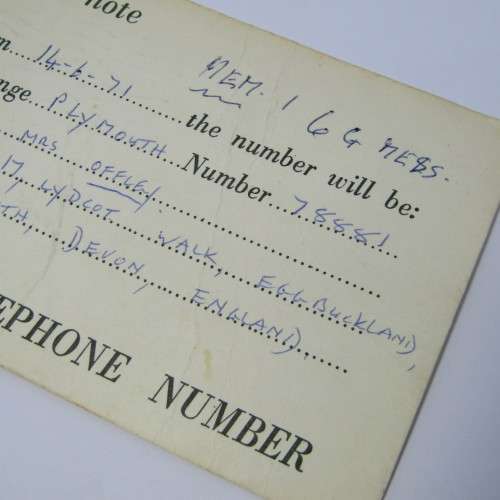 note
14-6-71 the number will be:
MEM. 1 6 G MEBS.
PLYMOUTH Number 78881
MRS OFFLEY
WALK, EGGBUCKLAND,
DEVON, ENGLAND
EPHONE NUMBER